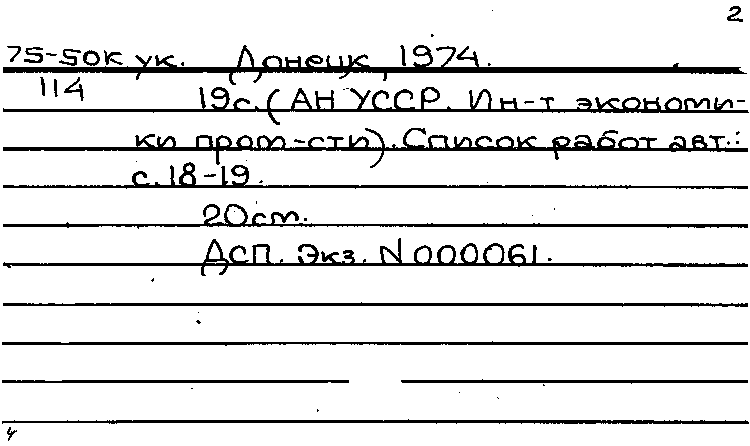 2
75-50к ук. Донецк, 1974.
114 19с. (АН УССР. Ин-т экономи-
ки пром-сти). Список работ авт.:
с. 18-19.
20 ст.
ДСП. Экз. N 000061.
4